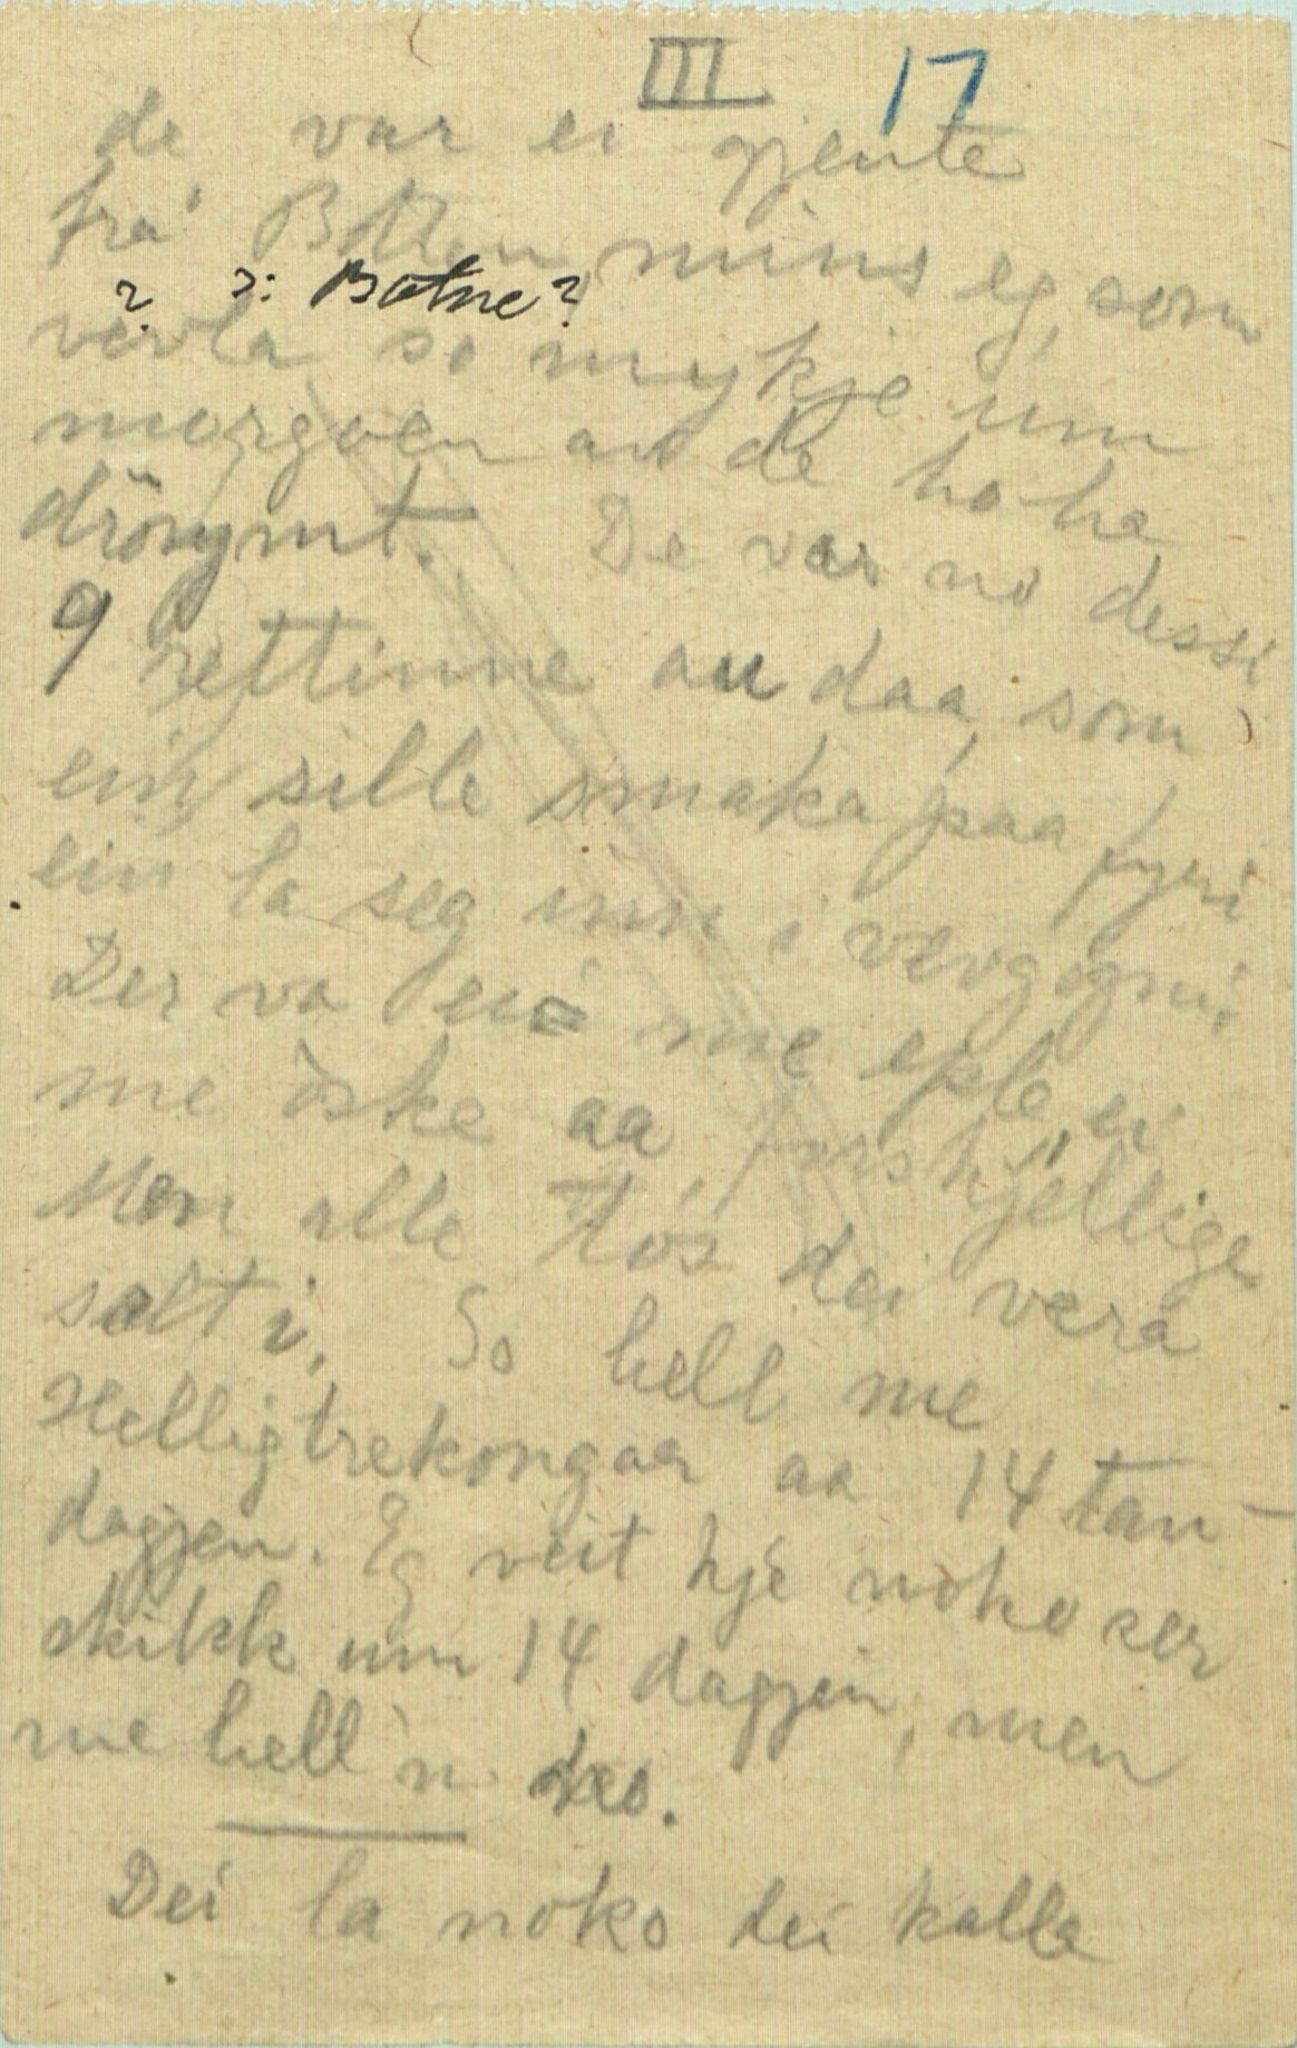 III 17
de var ei gjente
frå Botten mins eg, som
? ɔ: Botne?
verla so mykje um
morgoen av de ho ha
dröymt. De var no dessi
9 rettinne au daa, som
ein sille smaka paa fyri
ein la seg inn i vevgogni.
Der va ei me eple, ei
me öske aa forskjellige
Men alle tös dei vera
salt i. So hell me
Helligtrekongaar aa 14 tan-
dagjen. Eg veit kje noko ser
skikk um 14 dagjen, men
me hell'n
Dei la noko dei kalla